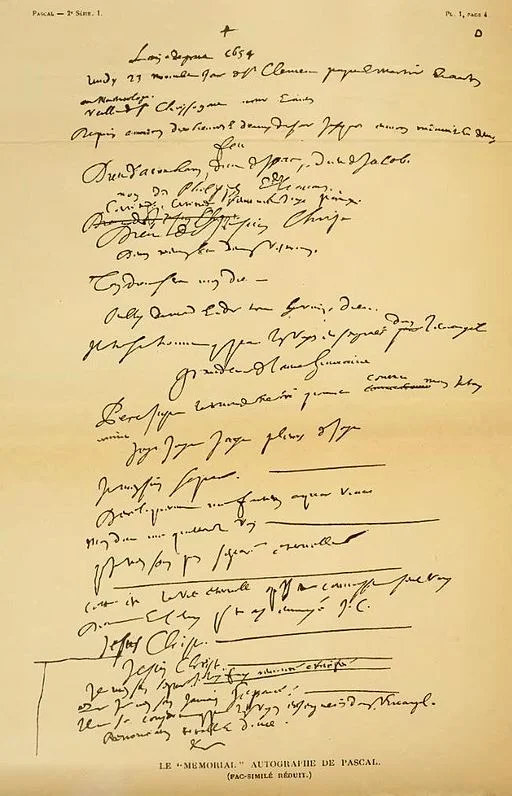 PASCAL — 2e SÉRIE. 1.
PL. 1, PAGE 4
L'an de grace 1654
Lundy 23 novembre jour de St Clement pape et martir et autres
au Martirologe
veille de St Chrysogone martir et autres
Depuis environ dix heures et demy du soir jusques environ minuit et demy
feu
Dieu d'Abraham, Dieu d'Isaac, Dieu de Jacob.
non des Philosophes et des
Certitude, certitude, sentiment, joye, paix.
Dieu de Jesus Christ
Deum meum et Deum vestrum.
Ton Dieu sera mon Dieu —
Oubly du monde et de tout hormis Dieu.
Il ne se trouve que par les voyes enseignées dans l'Evangile
grandeur de l'ame humaine
Pere juste le monde ne t'a point connu mais je t'ay
connu
Joye Joye Joye pleurs de Joye
Je m'en suis separé
Dereliquerunt me fontem aquae vivae
mon Dieu me quitterez vous
que je n'en sois pas separé eternellement
cette est la vie eternelle qu'ils te connoissent seul vray
Dieu et celuy que tu as envoyé J. C.
Jesus Christ
Jesus Christ
Je m'en suis separé je l'ay fuy renoncé crucifié
que je n'en sois jamais separé
Il ne se conserve que par les voyes enseignées dans l'Evangile.
Renonciation totale et douce.
LE "MEMORIAL" AUTOGRAPHE DE PASCAL.
(FAC-SIMILÉ RÉDUIT.)